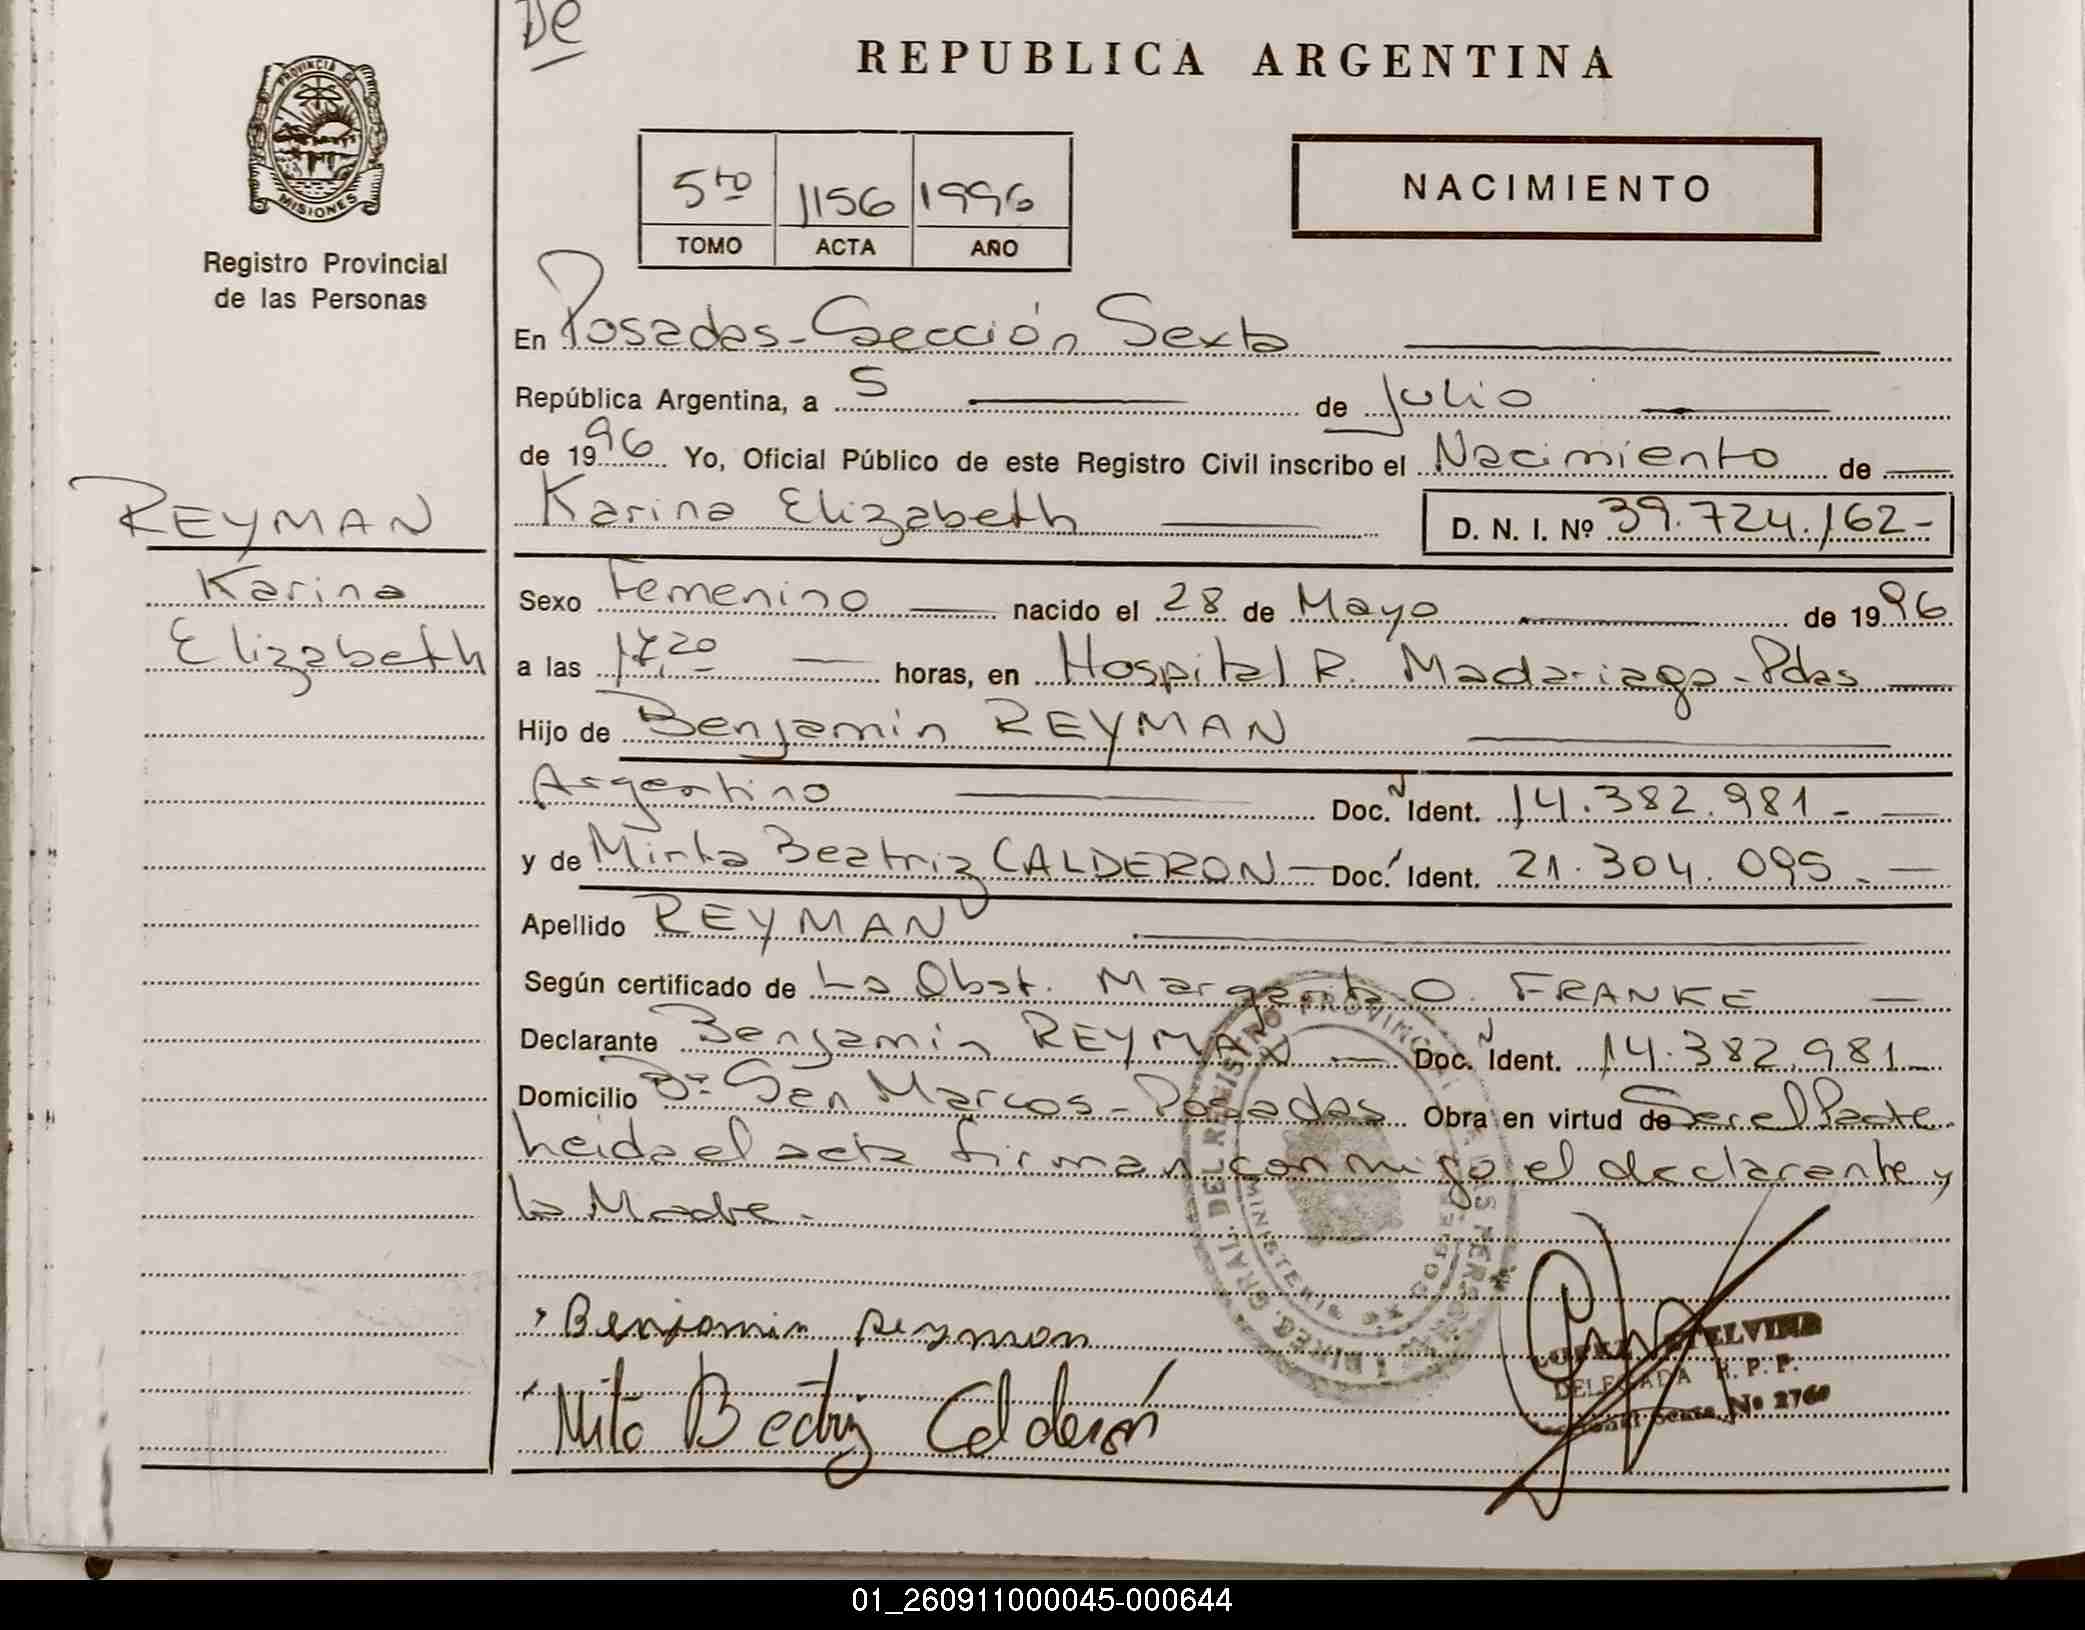 De
REPUBLICA ARGENTINA
PROVINCIA DE
MISIONES
Registro Provincial
de las Personas
5to 1156 1996
TOMO ACTA AÑO
NACIMIENTO
En Posadas-Sección Sexta
República Argentina, a 5 de Julio
de 1996 Yo, Oficial Público de este Registro Civil inscribo el Nacimiento de
Karina Elizabeth D. N. I. Nº 39.724.162-
REYMAN
Karina
Elizabeth
Sexo Femenino nacido el 28 de Mayo de 1996
a las 17,20 horas, en Hospital R. Madariaga-Pdas
Hijo de Benjamin REYMAN
Argentino Doc. Ident. 14.382.981-
y de Mirta Beatriz CALDERON Doc. Ident. 21.304.095.
Apellido REYMAN
Según certificado de La Obst. Margarita O. FRANKE
Declarante Benjamin REYMAN Doc. Ident. 14.382.981
Domicilio Bº San Marcos-Posadas Obra en virtud de Ser el Padre
Leida el acta firman conmigo el declarante y
la Madre.-
Benjamin Reyman
Mirta Beatriz Calderón
DELEGADA R. P. P.
Nº 2760
01_260911000045-000644